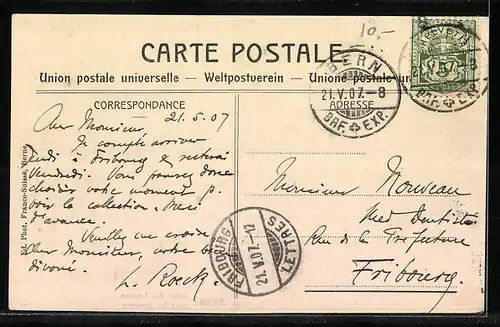 10,-
CARTE POSTALE
Union postale universelle. — Weltpostverein — Unione postale
HELVETIA
5
BERN
21.V.07.-8
BRF. EXP.
BRF. EXP.
CORRESPONDANCE
ADRESSE
21.5.07
Cher Monsieur,
Je compte arriver
jeudi à Fribourg &
Vendredi. Vous pouvez donc
choisir votre moment p.
voir la collection. Merci
d'avance.
Veuillez me croire
cher Monsieur, votre bien
dévoué.
Monsieur
Med. Dentiste
Rue de la Préfecture
Fribourg.
FRIBOURG
21.V.07.-12
LETTRES
Ed. Phot. Franco-Suisse, Berne